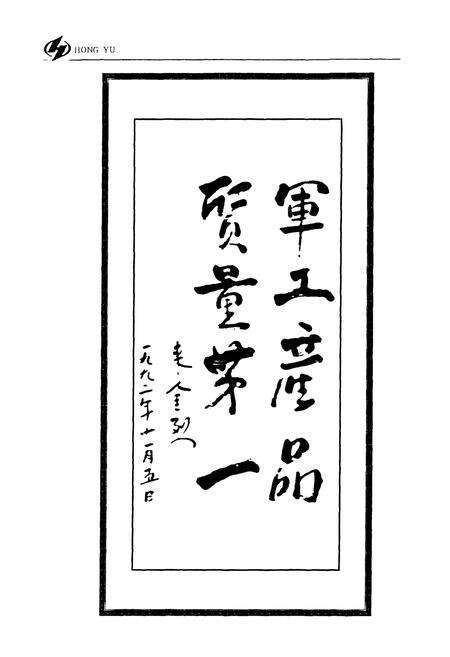 HONG YU
軍工産品
質量第一
一九九二年十一月五日